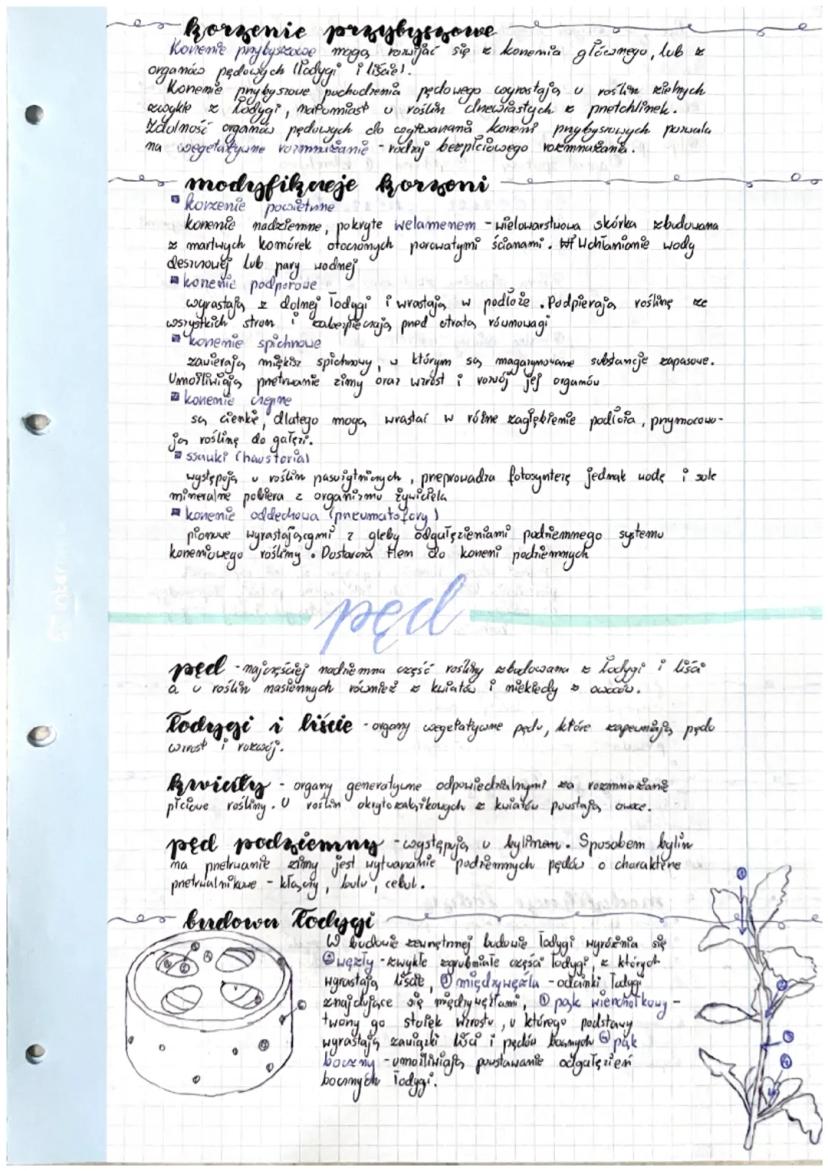 korzenie przybyszowe
Korzenie przybyszowe mogą rozwijać się z korzenia głównego, lub z
organów pędowych (łodygi i liście).
Korzenie przybyszowe pochodzenia pędowego wyrastają u roślin zielnych
zwykle z łodygi, natomiast u roślin drzewiastych z przetchlinek.
Zdolność organów pędowych do wytwarzania korzeni przybyszowych pozwala
na wegetatywne rozmnażanie - rodzaj bezpłciowego rozmnażania.
modyfikacje korzeni
korzenie powietrzne
korzenie nadziemne, pokryte welamenem - wielowarstwowa skórka zbudowana
z martwych komórek otoczonych porowatymi ścianami. Wchłanianie wody
deszczowej lub pary wodnej
korzenie podporowe
wyrastają z dolnej łodygi i wrastają w podłoże. Podpierają roślinę ze
wszystkich stron i zabezpieczają przed utratą równowagi
korzenie spichrzowe
zawierają miękisz spichrzowy, w którym są magazynowane substancje zapasowe.
Umożliwiają przetrwanie zimy oraz wzrost i rozwój jej organów
korzenie czepne
są cienkie, dlatego mogą wrastać w różne zagłębienie podłoża, przymocowu-
ją roślinę do gałęzi.
ssawki (haustoria)
występują u roślin pasożytniczych, przeprowadza fotosyntezę jednak wodę i sole
mineralne pobiera z organizmu żywiciela
korzenie oddechowa (pneumatofory)
pionowe wyrastającymi z gleby odgałęzieniami podziemnego systemu
korzeniowego rośliny. Dostarcza tlen do korzeni podziemnych
pęd
pęd - najczęściej nadziemna część rośliny zbudowana z łodygi i liści
a u roślin nasiennych również z kwiatów i niekiedy z owoców.
łodygi i liście - organy wegetatywne pędu, które zapewniają pędu
wzrost i rozwój.
kwiaty - organy generatywne odpowiedzialnymi za rozmnażanie
płciowe rośliny. U roślin okrytozalążkowych z kwiatów powstają owoce.
pęd podziemny - występują u bylinam. Sposobem bylin
na przetrwanie zimy jest wytwarzanie podziemnych pędów o charakterze
przetrwalnikowe - kłączy, bulw, cebul.
budowa łodygi
W budowie zewnętrznej budowie łodygi wyróżnia się
węzły - zwykle zgrubniałe części łodygi, z których
wyrastają liście, międzywęźla - odcinki łodygi
znajdujące się między węzłami, pąk wierzchołkowy -
tworzy go stożek wzrostu, u którego podstawy
wyrastają zawiązki liści i pędów bocznych pąk
boczny - umożliwiają powstawanie odgałęzień
bocznych łodygi.